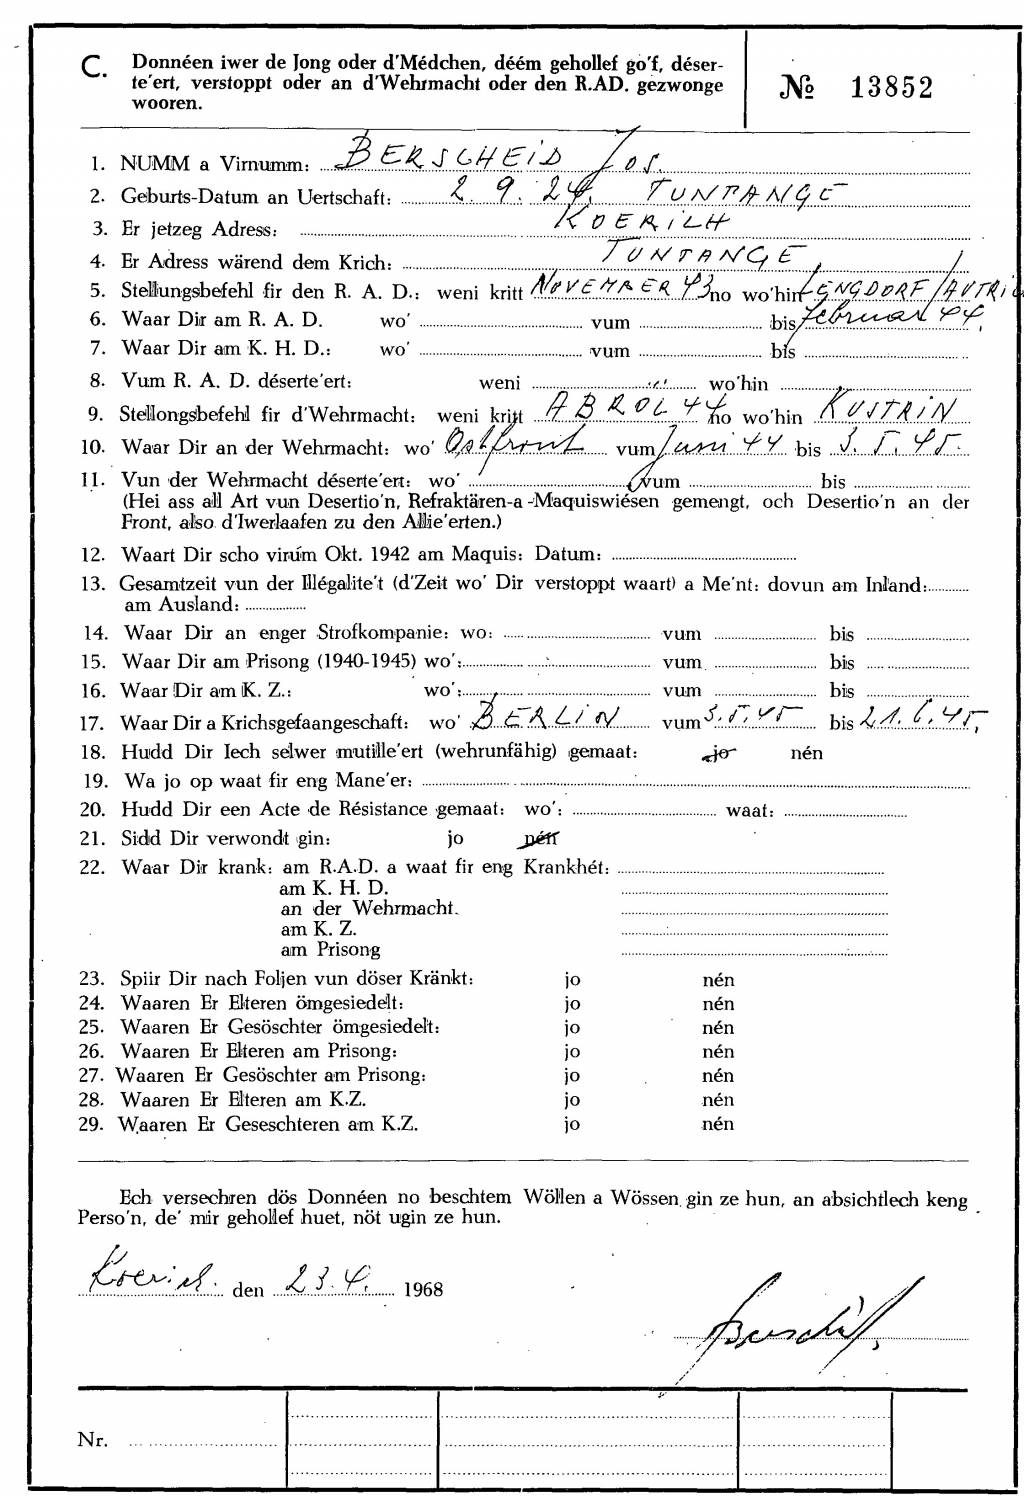 C. Donnéen iwer de Jong oder d'Médchen, déém gehollef go'f, déser-
te'ert, verstoppt oder an d'Wehrmacht oder den R.AD. gezwonge
wooren.
№ 13852
1. NUMM a Virnumm: BERSCHEID Jos.
2. Geburts-Datum an Uertschaft: 2.9.24. TUNTANGE
3. Er jetzeg Adress: KOERICH
4. Er Adress wärend dem Krich: TUNTANGE
5. Stellungsbefehl fir den R. A. D.: weni kritt NOVEMBER 43 no wo'hin LENGDORF/AUTRIC
6. Waar Dir am R. A. D. wo' vum bis februar 44.
7. Waar Dir am K. H. D.: wo' vum bis
8. Vum R. A. D. déserte'ert: weni wo'hin
9. Stellongsbefehl fir d'Wehrmacht: weni kritt ABROL 44 no wo'hin KUSTRIN
10. Waar Dir an der Wehrmacht: wo' Ostfront vum Juni 44 bis 3.5.45.
11. Vun der Wehrmacht déserte'ert: wo' vum bis
(Hei ass all Art vun Desertio'n, Refraktären-a-Maquiswiésen gemengt, och Desertio'n an der
Front, also d'Iwerlaafen zu den Allie'erten.)
12. Waart Dir scho virum Okt. 1942 am Maquis: Datum:
13. Gesamtzeit vun der Illégalite't (d'Zeit wo' Dir verstoppt waart) a Me'nt: dovun am Inland:
am Ausland:
14. Waar Dir an enger Strofkompanie: wo: vum bis
15. Waar Dir am Prisong (1940-1945) wo': vum bis
16. Waar Dir am K. Z.: wo': vum bis
17. Waar Dir a Krichsgefaangeschaft: wo' BERLIN vum 3.5.45 bis 21.6.45.
18. Hudd Dir Iech selwer mutille'ert (wehrunfähig) gemaat: jo nén
19. Wa jo op waat fir eng Mane'er:
20. Hudd Dir een Acte de Résistance gemaat: wo': waat:
21. Sidd Dir verwondt gin: jo nén
22. Waar Dir krank: am R.A.D. a waat fir eng Krankhét:
am K. H. D.
an der Wehrmacht.
am K. Z.
am Prisong
23. Spiir Dir nach Foljen vun döser Kränkt: jo nén
24. Waaren Er Elteren ömgesiedelt: jo nén
25. Waaren Er Gesöschter ömgesiedelt: jo nén
26. Waaren Er Elteren am Prisong: jo nén
27. Waaren Er Gesöschter am Prisong: jo nén
28. Waaren Er Elteren am K.Z. jo nén
29. Waaren Er Geseschteren am K.Z. jo nén
Ech versechren dös Donnéen no beschtem Wöllen a Wössen gin ze hun, an absichtlech keng
Perso'n, de' mir gehollef huet, nöt ugin ze hun.
Koerich. den 23.4. 1968
Nr.